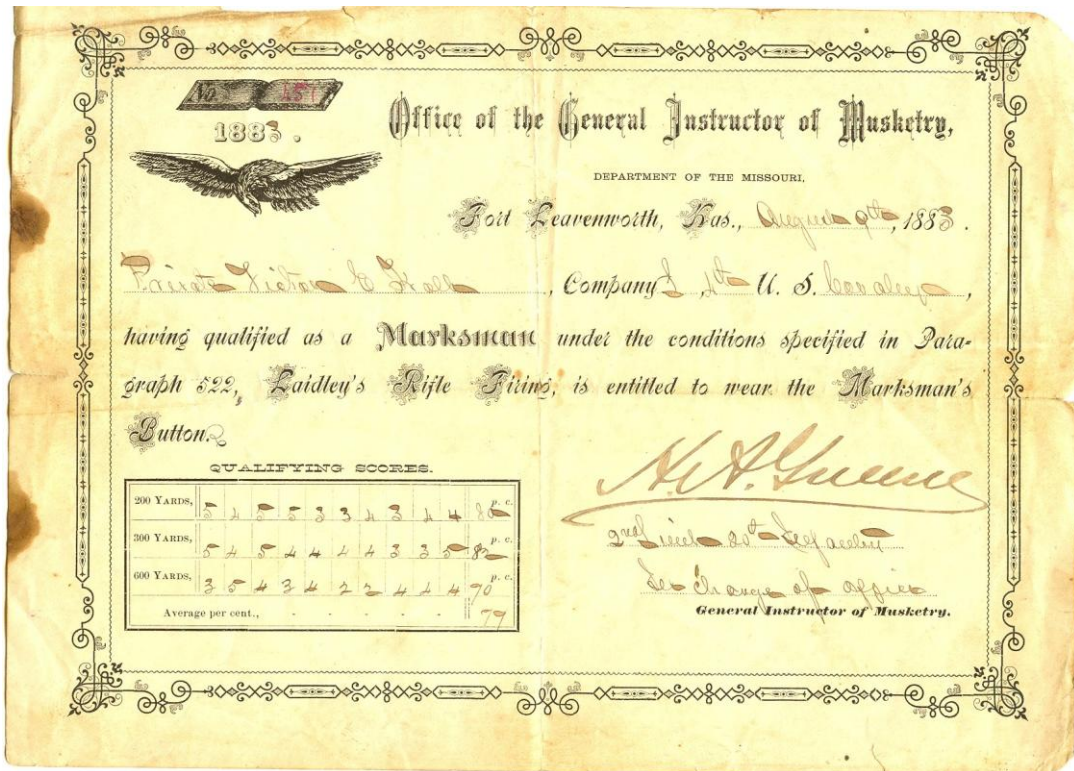 No.
1883.
Office of the General Instructor of Musketry,
DEPARTMENT OF THE MISSOURI,
Fort Leavenworth, Kas., August 9th, 1883.
Private Victor E , Company 4th U. S. Cavalry,
having qualified as a Marksman under the conditions specified in Para-
graph 522, Laidley's Rifle Firing, is entitled to wear the Marksman's
Button.
QUALIFYING SCORES.
200 YARDS, 5 4 5 5 3 3 4 3 4 4 80 p. c.
300 YARDS, 5 4 5 4 4 4 4 3 3 5 82 p. c.
600 YARDS, 3 5 4 3 4 2 2 4 4 4 70 p. c.
Average per cent.,
H. A. Greene
2nd Lieut 20th Infantry
In Charge of office
General Instructor of Musketry.